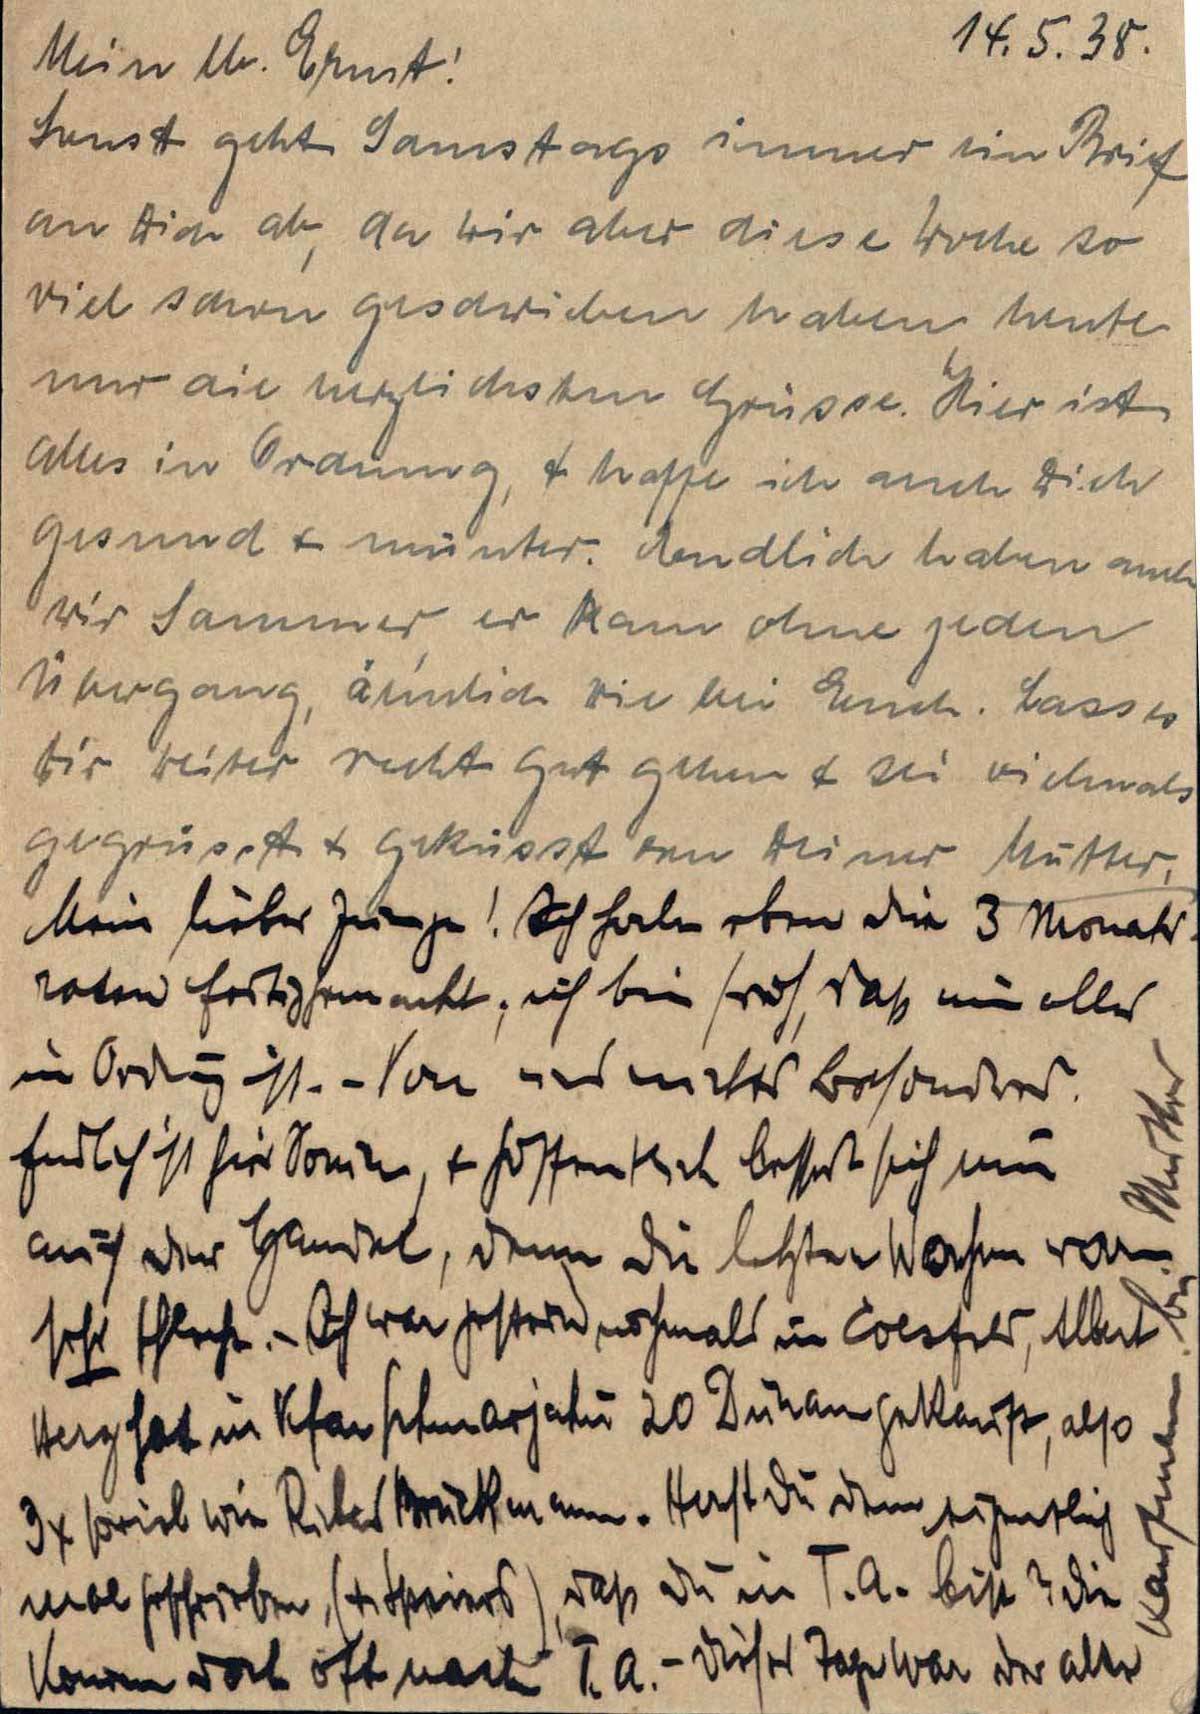 14.5.38.
Mein lb. Ernst!
Sonst geht Samstags immer ein Brief
an Dich ab, da wir aber diese Woche so
viel schon geschrieben haben, heute
nur die herzlichsten Grüsse. Hier ist
alles in Ordnung, & hoffe ich auch Dich
gesund & munter. Endlich haben auch
wir Sommer, er kam ohne jeden
Übergang, ähnlich wie bei Euch. Lass es
Dir weiter recht gut gehen & sei vielmals
gegrüsst & geküsst von Deiner Mutter.
Mein lieber Junge! Ich habe eben die 3 Monats-
raten fertiggemacht, ich bin froh, daß nun alles
in Ordnung ist. - Von uns nichts Besonderes.
Endlich ist hier Sonne, & hoffentlich bessert sich nun
auch der Handel, denn die letzten Wochen waren
sehr schlecht. - Ich war gestern nochmals in Coesfeld, Albert
Herz hat in Kfar 20 Dunam gekauft, also
3x soviel wie Brückmann. Hast Du denn eigentlich
mal geschrieben, daß Du in T.A. bist? die
kommen doch oft nach T.A. - Dieser Tage war der alte
Kaufmann bei Mutter